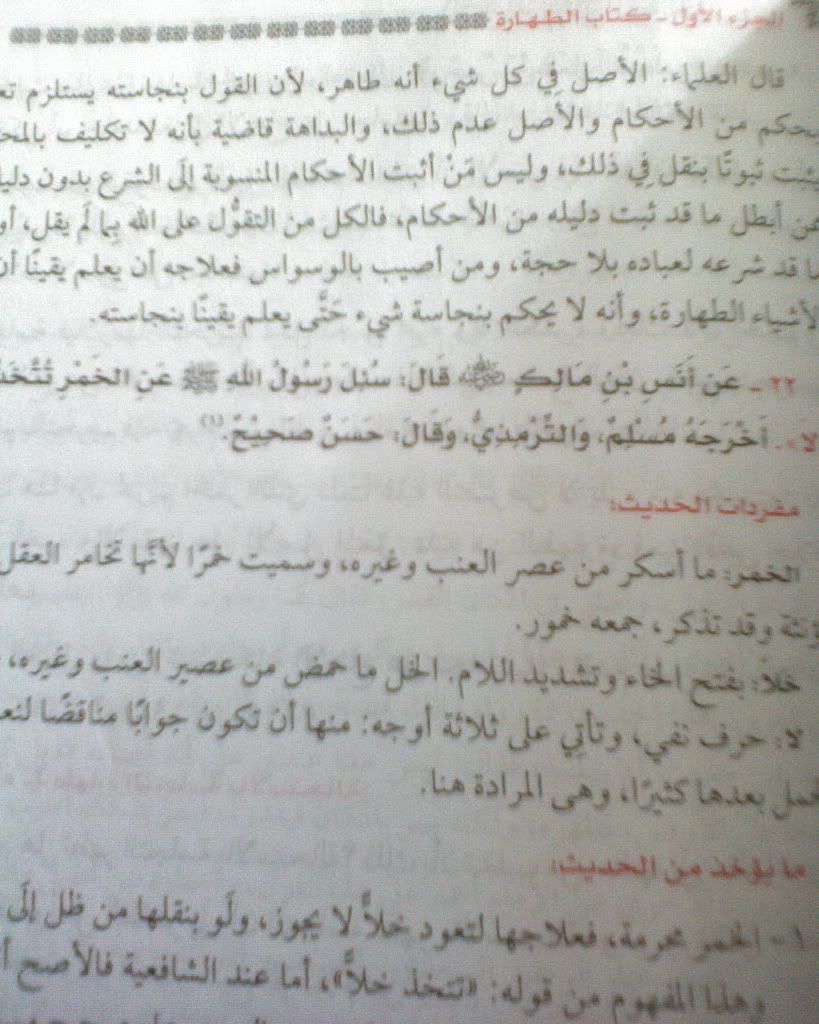 الجزء الأول - كتاب الطهارة
قال العلماء: الأصل فِي كل شيء أنه طاهر، لأن القول بنجاسته يستلزم
بحكم من الأحكام والأصل عدم ذلك، والبداهة قاضية بأنه لا تكليف
يثبت ثبوتًا بنقل فِي ذلك، وليس مَنْ أثبت الأحكام المنسوبة إلَى الشرع بدون
أبطل ما قد ثبت دليله من الأحكام، فالكل من التقوُّل على الله بِما لَم يقل،
ما قد شرعه لعباده بلا حجة، ومن أصيب بالوسواس فعلاجه أن يعلم يقينًا
الأشياء الطهارة، وأنه لا يحكم بنجاسة شيء حَتَّى يعلم يقينًا بنجاسته.
٢٢ - عَن أَنَسِ بْنِ مَالِكٍ ﷺ قَالَ: سُئِلَ رَسُولُ اللهِ ﷺ عَنِ الخَمْرِ
لاَ». أَخْرَجَهُ مُسْلِمٌ، وَالتِّرْمِذِيُّ، وَقَالَ: حَسَنٌ صَحِيْحٌ.(١)
مفردات الحديث:
الخمر: ما أسكر من عصر العنب وغيره، وسميت خمرًا لأنَّها تخامر العقل
وقد تذكر، جمعه خمور.
خلاً: بفتح الخاء وتشديد اللام. الخل ما حمض من عصير العنب وغيره،
لا: حرف نفي، وتأتِي على ثلاثة أوجه: منها أن تكون جوابًا مناقضًا
بعدها كثيرًا، وهى المرادة هنا.
ما يؤخذ من الحديث:
١ - الخمر محرمة، فعلاجها لتعود خلاًّ لا يجوز، ولَو بنقلها من ظل إلَى
وهذا المفهوم من قوله: «تتخذ خلاًّ»، أما عند الشافعية فالأصح